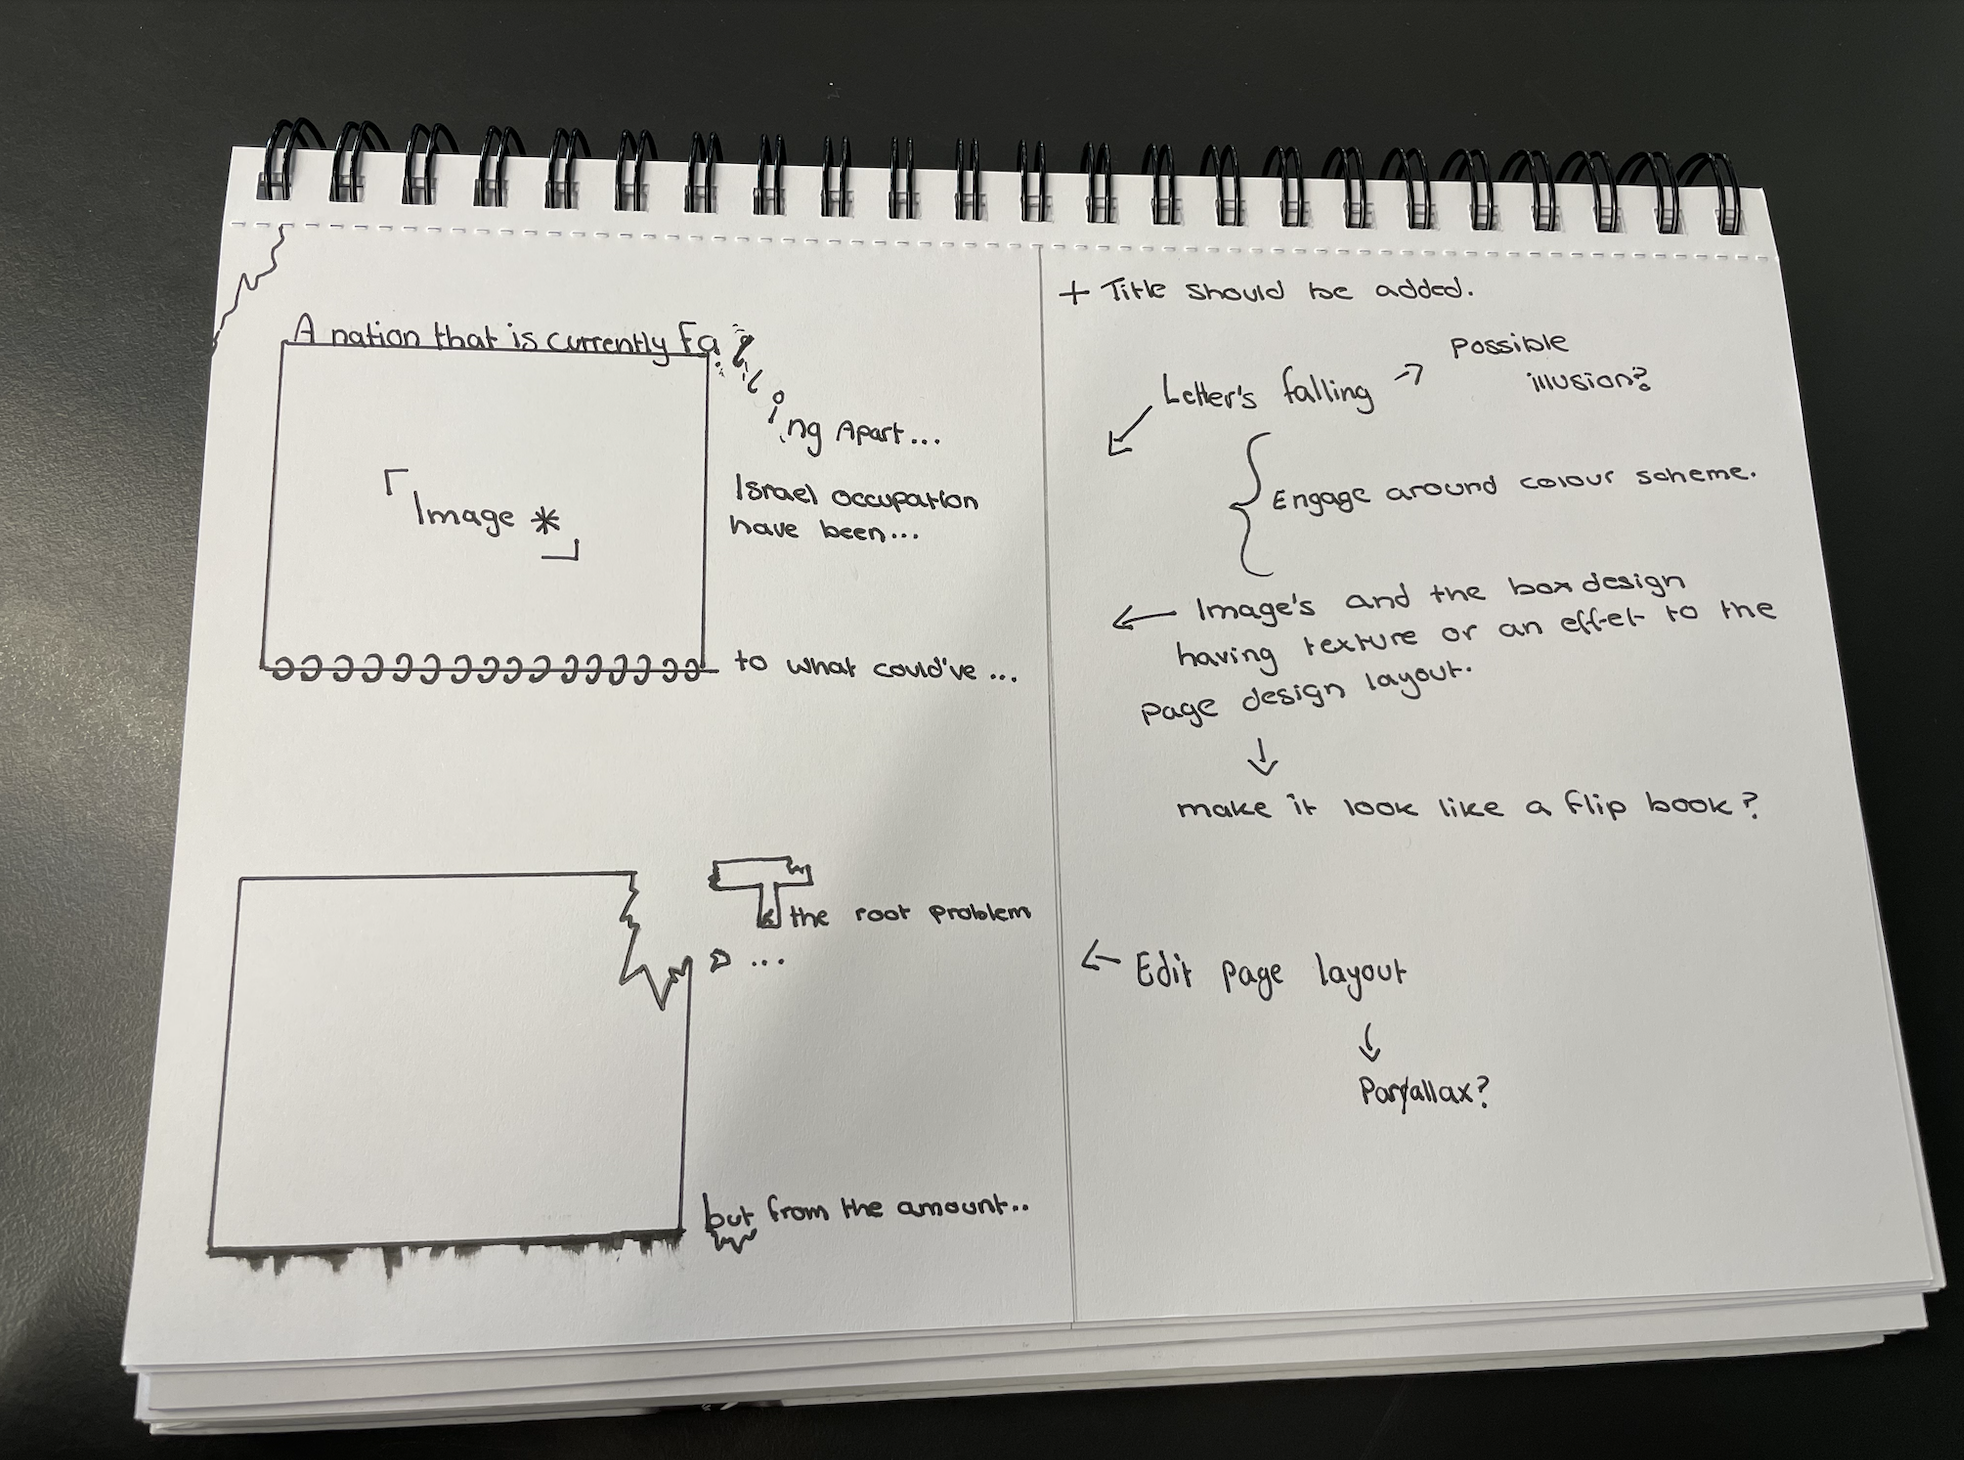 A nation that is currently Falling Apart...
Image *
Israel occupation
have been...
to what could've ...
T the root problem
...
but from the amount..
+ Title should be added.
Letter's falling → Possible
illusion?
Engage around colour scheme.
← Image's and the box design
having texture or an effet to the
page design layout.
↓
make it look like a flip book?
← Edit page layout
↓
Parallax?